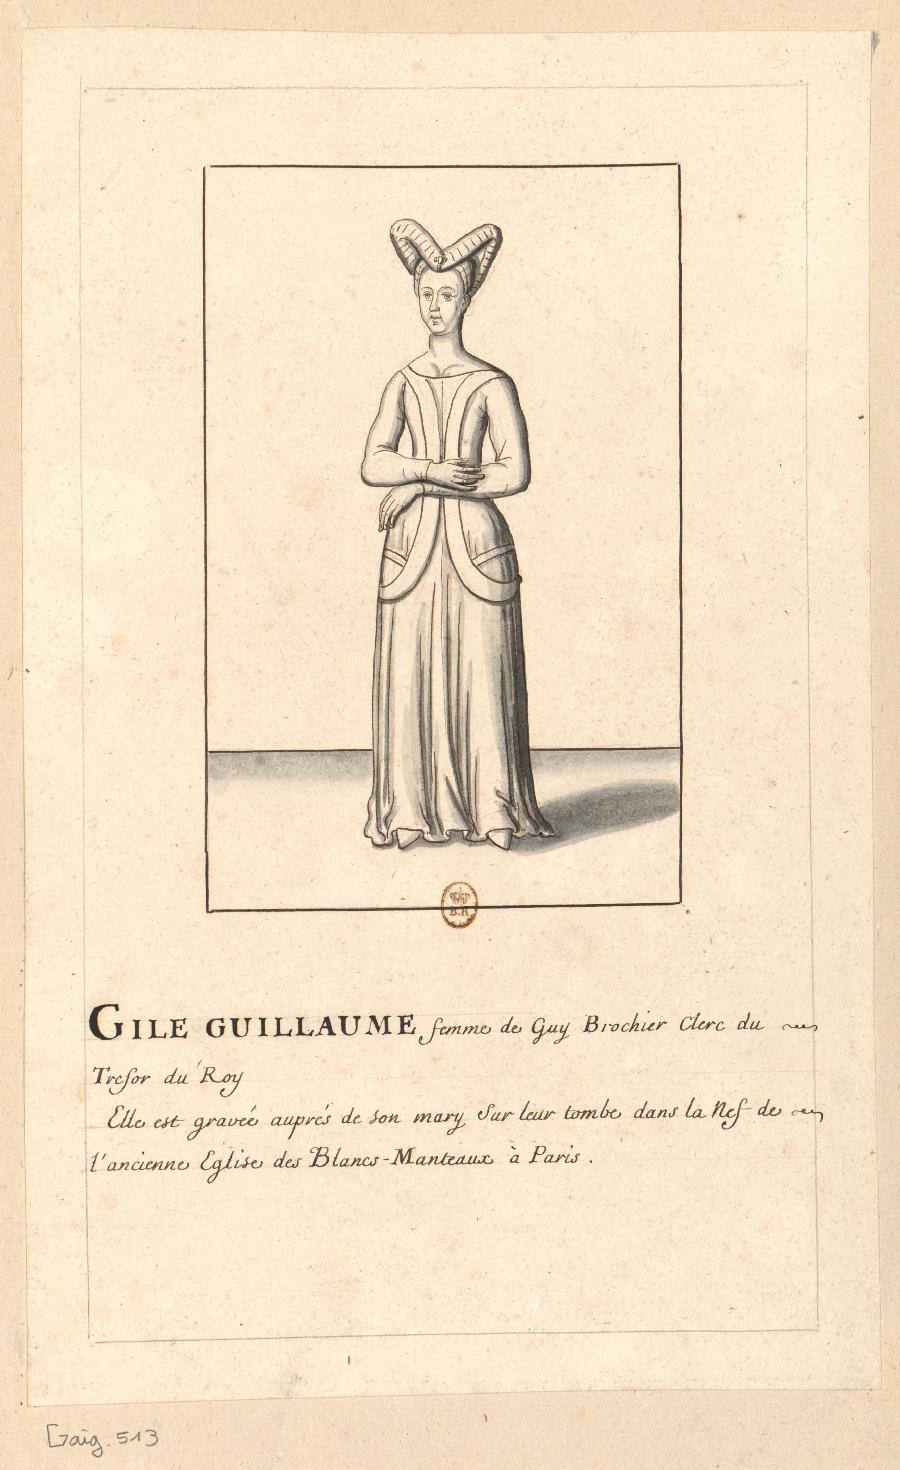 B.R
GILE GUILLAUME femme de Guy Brochier Clerc du
Tresor du Roy
Elle est graveé auprés de son mary Sur leur tombe dans la Nef de
l'ancienne Eglise des Blancs-Manteaux à Paris.
Gaig. 513